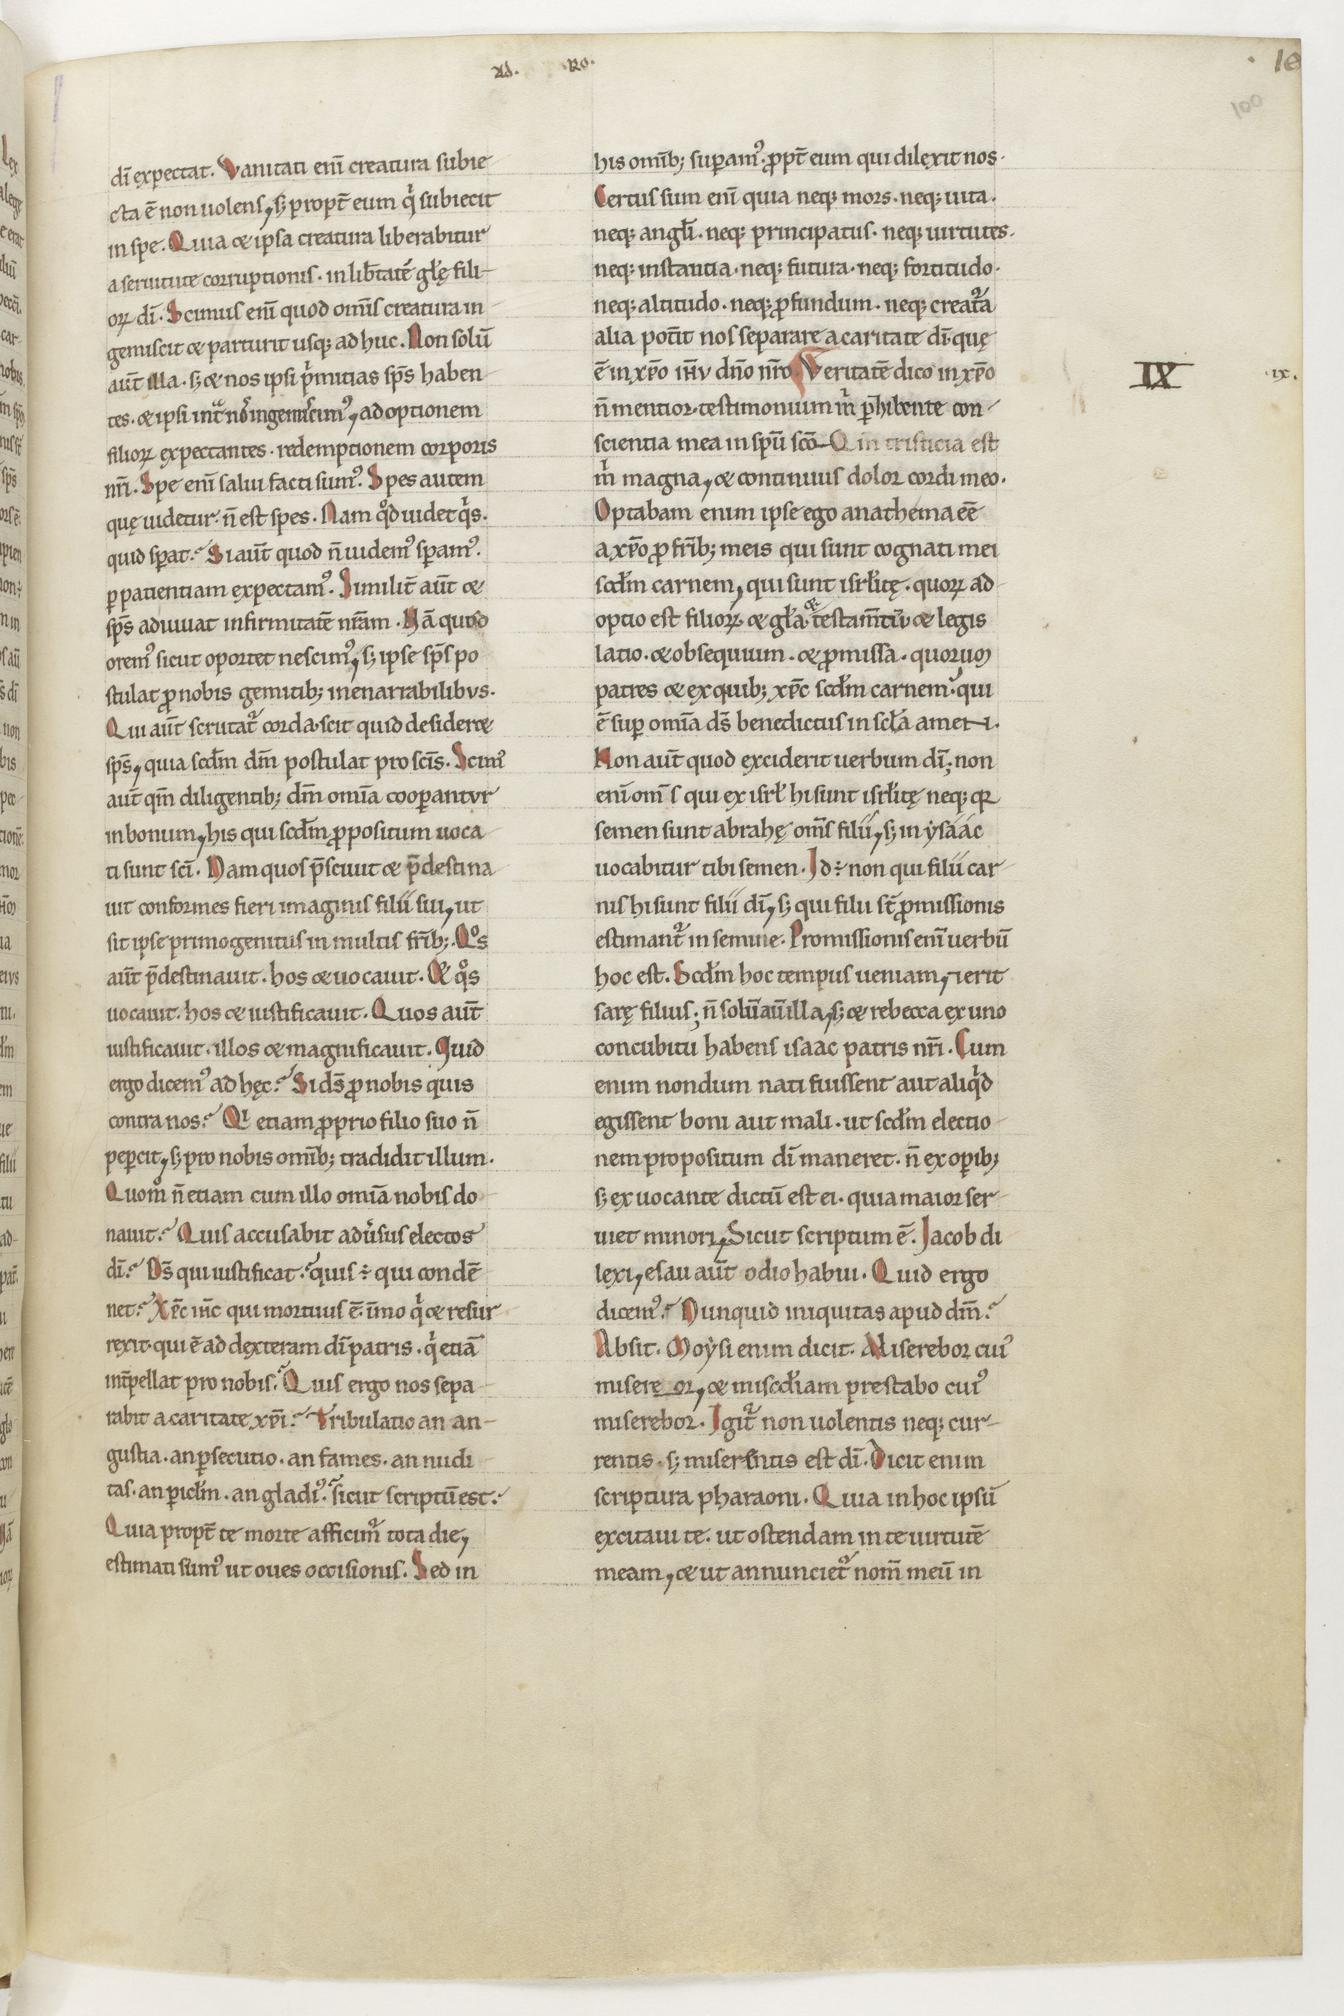 Ad. Ro.
100
dī expectat. Vanitati enī creatura subie
cta ē non uolens, sꝫ propt̄ eum qͥ subiecit
in spe. Quia & ipsa creatura liberabitur
a seruitute corruptionis. in lib̄tatē gl̄ę fili-
oꝝ dī. Scimus enī quod om̄is creatura in
gemiscit & parturit usqꝫ ad huc. Non solū
aūt illa. sꝫ & nos ipsi pͥmitias sp̄s haben
tes. & ipsi
filioꝝ expectantes. redemptionem corporis
nr̄i. Spe enī salui facti sumꝰ. Spes autem
quę uidetur. n̄ est spes. Nam qͦd uidet qͥs.
quid sꝑat? Si aūt quod n̄ uidemꝰ sꝑamꝰ.
ꝑ patientiam expectamꝰ. Similit̄ aūt &
sp̄s adiuuat infirmitatē nr̄am. Nā quid
oremꝰ sicut oportet nescimꝰ, sꝫ ipse sp̄s po
stulat ꝓ nobis gemitibꝫ inenarrabilibus.
Qui aūt scrutatᷣ corda. scit quid desideret
sp̄s, quia scd̄m dm̄ postulat pro sc̄is. Scimꝰ
aūt qm̄ diligentibꝫ dm̄ omīa cooꝑantur
in bonum, his qui scd̄m ꝓpositum uoca
ti sunt sc̄i. Nam quos p̄sciuit & p̄destina
uit conformes fieri imaginis filii sui, ut
sit ipse primogenitus in multis fr̄ibꝫ. Qͦs
aūt p̄destinauit. hos & uocauit. Et qͦs
uocauit. hos & iustificauit. Quos aūt
iustificauit. illos & magnificauit. Quid
ergo dicemꝰ ad hęc? Si ds̄ ꝓ nobis quis
contra nos? Qͥ etiam ꝓprio filio suo n̄
peꝑcit, sꝫ pro nobis omībꝫ tradidit illum.
Quom̊ n̄ etiam cum illo omīa nobis do
nauit? Quis accusabit adūsus electos
dī? Ds̄ qui iustificat. quis ÷ qui condē
net? Xp̄c ih̄c qui mortuus ē. īmo qͥ & resur
rexit. qui ē ad dexteram dī patris. qͥ etiā
int̄pellat pro nobis. Quis ergo nos sepa
rabit a caritate xp̄i? Tribulatio an an-
gustia. an ꝑsecutio. an fames. an nudi
tas. an ꝑicl̄m. an gladiꝰ. sicut scriptū est.
Quia propt̄ te morte afficimᷣ tota die,
estimati sumꝰ ut oues occisionis. Sed in
his omībꝫ suꝑamꝰ. ꝓpt̄ eum qui dilexit nos.
Certus sum enī quia neqꝫ mors. neqꝫ uita.
neqꝫ angl̄i. neqꝫ principatus. neqꝫ uirtutes.
neqꝫ instantia. neqꝫ futura. neqꝫ fortitudo.
neqꝫ altitudo. neqꝫ ꝓfundum. neqꝫ creatᷣa
alia potīt nos separare a caritate dī. quę
ē in xp̄o ih̄u dn̄o nr̄o. Veritatē dico in xp̄o
IX
ix.
n̄ mentior. testimonium m̄ ꝑhibente con-
scientia mea in spū scō. Qm̄ tristicia est
m̄ magna, & continuus dolor cordi meo.
Optabam enim ipse ego anathema eē
a xp̄o ꝓ fr̄ibꝫ meis qui sunt cognati mei
scd̄m carnem, qui sunt isrl̄itę. quoꝝ ad-
optio est filioꝝ. & gl̄a & testam̄tū & legis
latio. & obsequium. & ꝓmissa. quorum
patres & ex quibꝫ xp̄c scd̄m carnem. qui
ē suꝑ omīa ds̄ benedictus in scl̄a amen.
Non aūt quod exciderit uerbum dī; non
enī om̄s qui ex isrl̄ hi sunt isrl̄itę neqꝫ qꝛ
semen sunt abrahę om̄s filii, sꝫ in ysaac
uocabitur tibi semen. Id ÷ non qui filii car
nis hi sunt filii dī, sꝫ qui filii st̄ ꝓmissionis
estimantᷣ in semine. Promissionis enī uerbū
hoc est. Scd̄m hoc tempus ueniam, ⁊ erit
sarę filius; n̄ solū aūt illa, sꝫ & rebecca ex uno
concubitu habens isaac patris nr̄i. Cum
enim nondum nati fuissent aut aliqͥd
egissent boni aut mali. ut scd̄m electio
nem propositum dī maneret. n̄ ex oꝑibꝫ
sꝫ ex uocante dictū est ei. quia maior ser
uiet minori, Sicut scriptum ē. Jacob di
lexi, esau aūt odio habui. Quid ergo
dicemꝰ? Nunquid iniquitas apud dm̄?
Absit. Moysi enim dicit. Miserebor cuiꝰ
misereor, & misc̄diam prestabo cuiꝰ
miserebor. Igitᷣ non uolentis neqꝫ cur-
rentis. sꝫ miserentis est dī. Dicit enim
scriptura pharaoni. Quia in hoc ipsū
excitaui te. ut ostendam in te uirtutē
meam, & ut annuncietᷣ nom̄ meū in